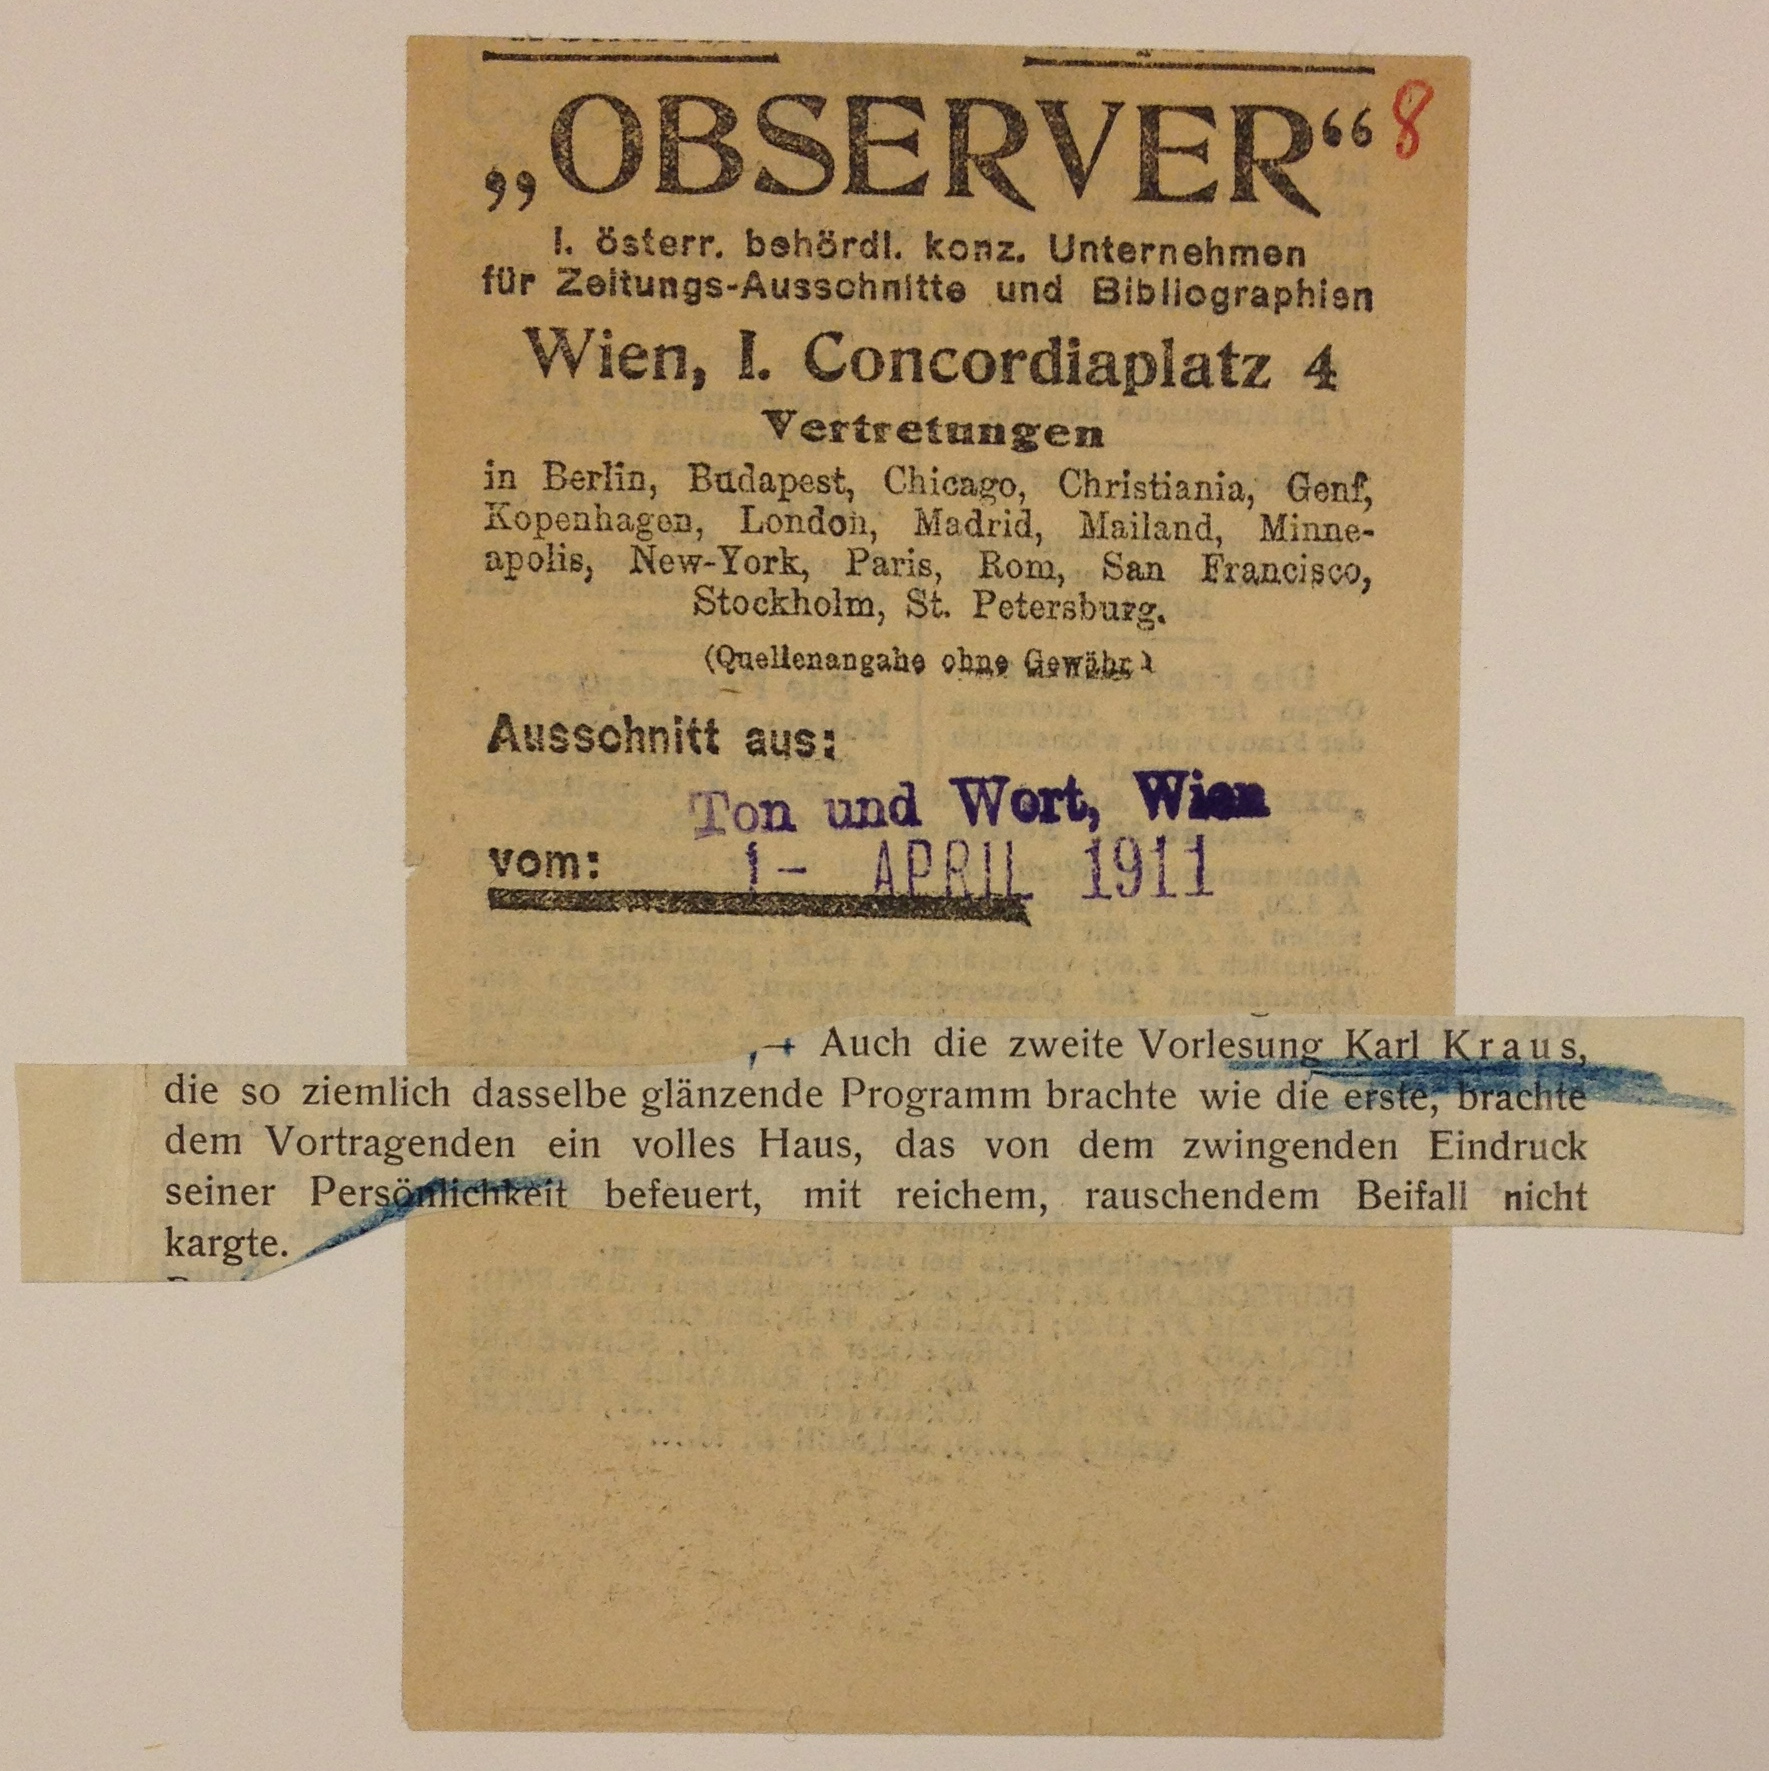 „OBSERVER“ 8
I. österr. behördl. konz. Unternehmen
für Zeitungs-Ausschnitte und Bibliographien
Wien, I. Concordiaplatz 4
Vertretungen
in Berlin, Budapest, Chicago, Christiania, Genf,
Kopenhagen, London, Madrid, Mailand, Minne-
apolis, New-York, Paris, Rom, San Francisco,
Stockholm, St. Petersburg.
(Quellenangabe ohne Gewähr)
Ausschnitt aus:
Ton und Wort, Wien
vom: 1- APRIL 1911
Auch die zweite Vorlesung Karl Kraus,
die so ziemlich dasselbe glänzende Programm brachte wie die erste, brachte
dem Vortragenden ein volles Haus, das von dem zwingenden Eindruck
seiner Persönlichkeit befeuert, mit reichem, rauschendem Beifall nicht
kargte.